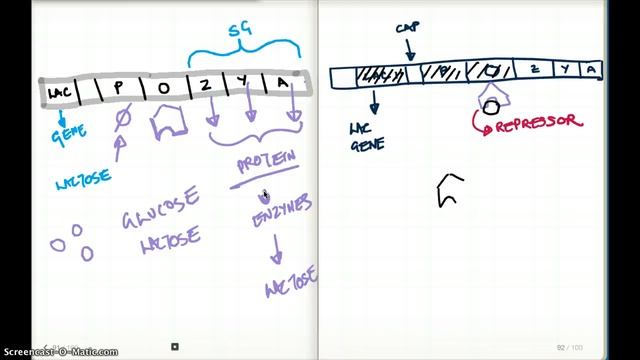 SG
LAC P O Z Y A
GENE
LACTOSE
PROTEIN
GLUCOSE
LACTOSE
ENZYMES
LACTOSE
CAP
Z Y A
LAC
GENE
REPRESSOR
92 / 100
Screencast-O-Matic.com